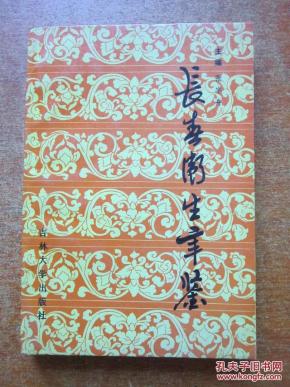 主编
長春衛生年鉴
吉林大学出版社
孔夫子旧书网